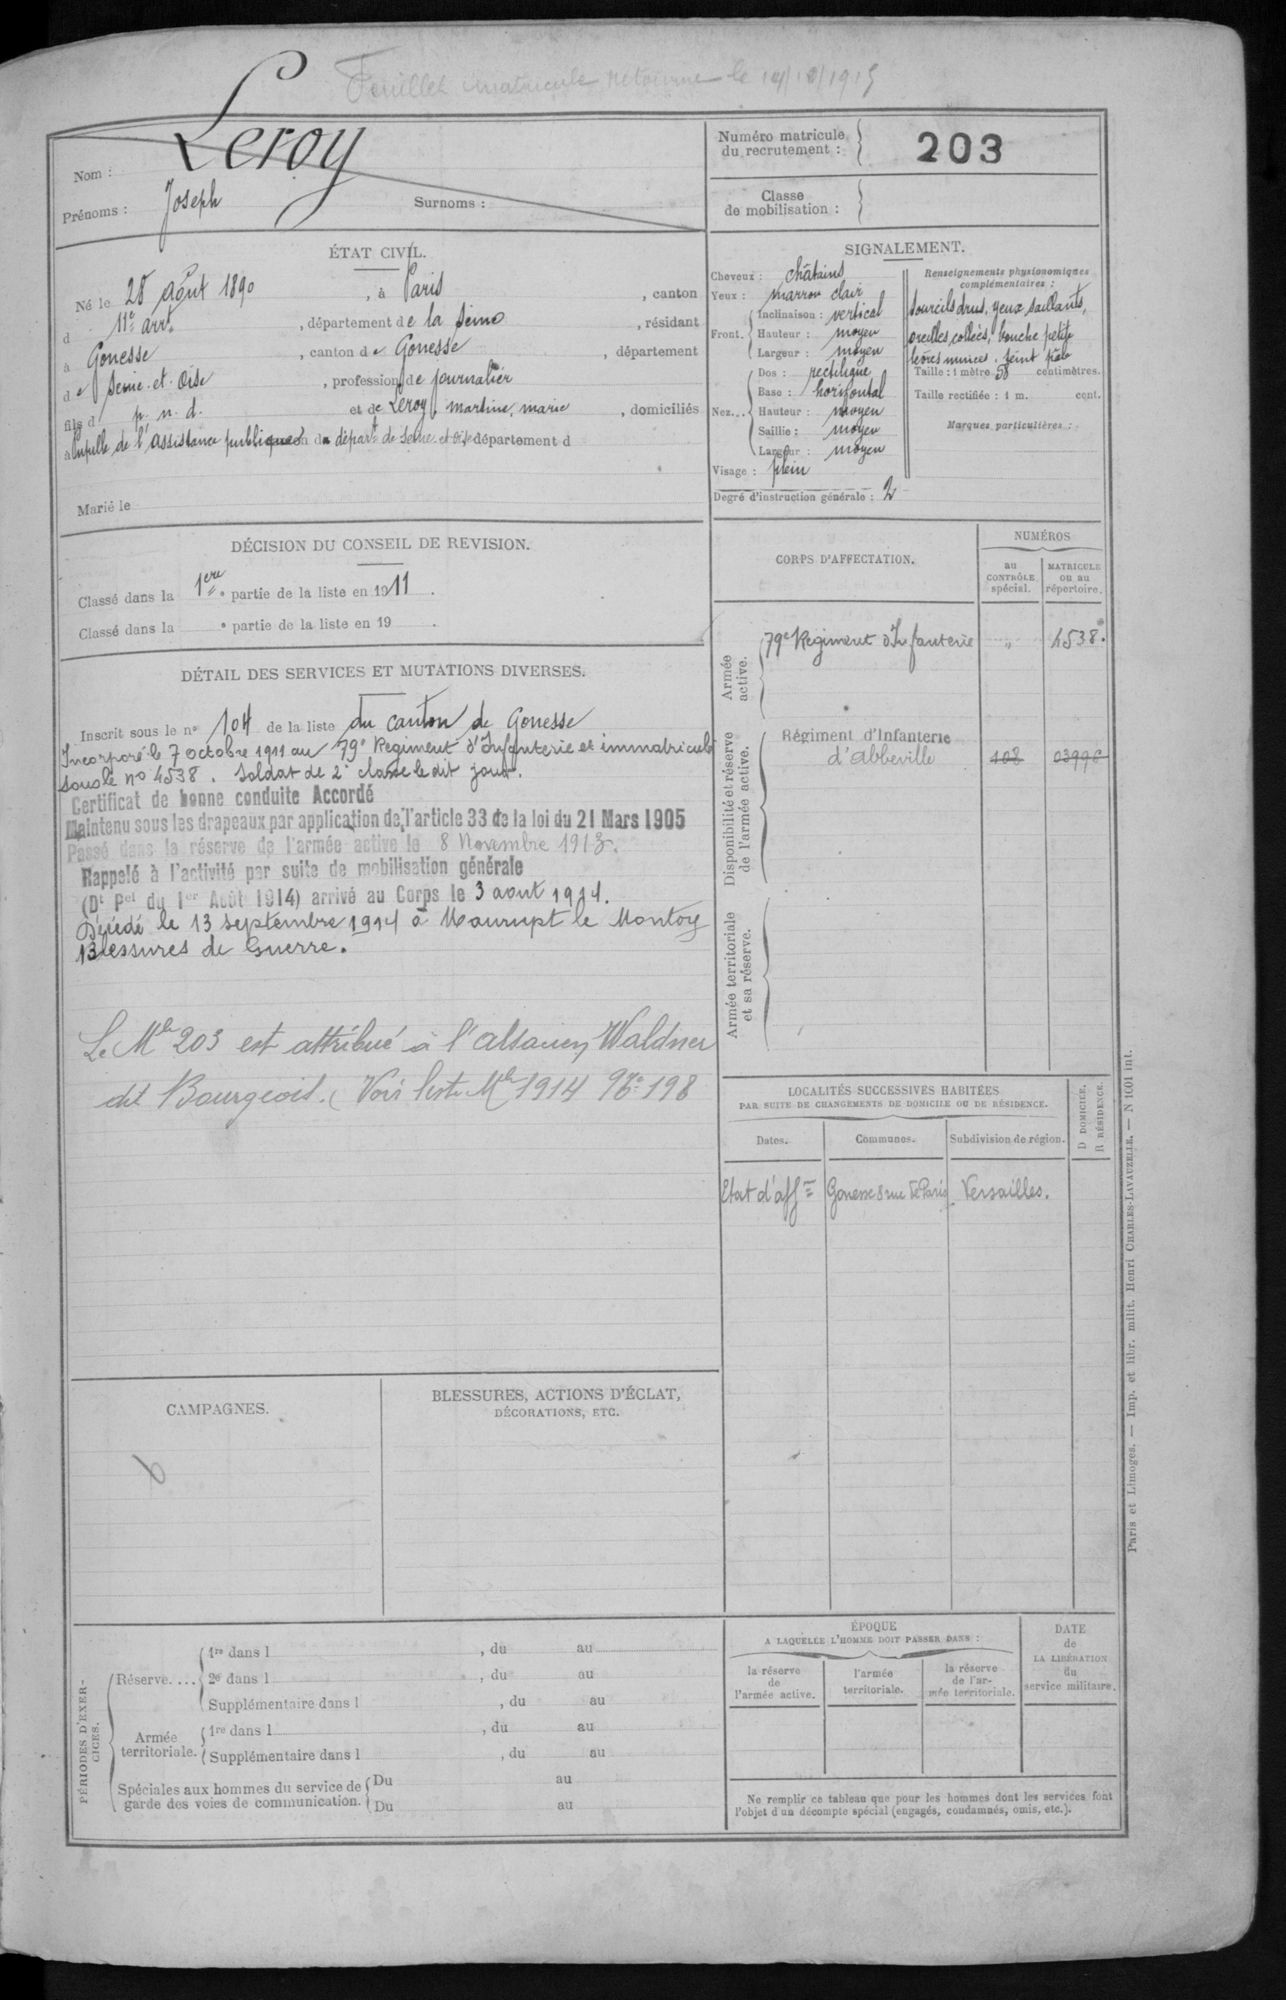 Feuillet matricule retourné le
Nom : Leroy
Prénoms : Joseph Surnoms :
Numéro matricule du recrutement : 203
Classe de mobilisation :
ÉTAT CIVIL.
Né le 28 août 1890, à Paris, canton
d 11e arrt, département de la Seine, résidant
à Gonesse, canton de Gonesse, département
de Seine-et-Oise, profession de journalier
fils d p. n. d. et de Leroy, martine, marie, domiciliés
à Pupille de l'assistance publique du départt de Seine et Oise département d
Marié le
SIGNALEMENT.
Cheveux : châtains
Yeux : marron clair
Front. Inclinaison : vertical
Hauteur : moyen
Largeur : moyen
Nez... Dos : rectiligne
Base : horizontal
Hauteur : moyen
Saillie : moyen
Largeur : moyen
Visage : plein
Degré d'instruction générale : 2
Renseignements physionomiques complémentaires :
Sourcils drus, yeux saillants,
oreilles collées, bouche petite
lèvres minces. teint pâle
Taille : 1 mètre 58 centimètres.
Taille rectifiée : 1 m. cent.
Marques particulières :
DÉCISION DU CONSEIL DE REVISION.
Classé dans la 1ère partie de la liste en 1911.
Classé dans la e partie de la liste en 19 .
DÉTAIL DES SERVICES ET MUTATIONS DIVERSES.
Inscrit sous le n° 104 de la liste du canton de Gonesse
Incorporé le 7 octobre 1911 au 79e Régiment d'Infanterie et immatriculé
sous le no 4538. Soldat de 2e classe le dit jour.
Certificat de bonne conduite Accordé
Maintenu sous les drapeaux par application de l'article 33 de la loi du 21 Mars 1905
Passé dans la réserve de l'armée active le 8 Novembre 1913.
Rappelé à l'activité par suite de mobilisation générale
(Dt Pel du 1er Août 1914) arrivé au Corps le 3 aout 1914.
Décédé le 13 septembre 1914 à Maurupt le Montoy
Blessures de Guerre.
Le Mle 203 est attribué à l'alsacien Waldner
dit Bourgeois. (Voir liste Mle 1914 No 198
CORPS D'AFFECTATION.
NUMÉROS
au CONTRÔLE spécial.
MATRICULE ou au répertoire.
Armée active.
79e Régiment d'Infanterie " 4538.
Disponibilité et réserve de l'armée active.
Régiment d'Infanterie
d'Abbeville 108 03996
Armée territoriale et sa réserve.
LOCALITÉS SUCCESSIVES HABITÉES
PAR SUITE DE CHANGEMENTS DE DOMICILE OU DE RÉSIDENCE.
Dates. Communes. Subdivision de région. D DOMICILE. R RÉSIDENCE.
Etat d'aff on Gonesse 8 rue de Paris Versailles.
CAMPAGNES.
BLESSURES, ACTIONS D'ÉCLAT,
DÉCORATIONS, ETC.
PÉRIODES D'EXERCICES.
Réserve.... 1re dans l , du au
2e dans l , du au
Supplémentaire dans l , du au
Armée territoriale. 1re dans l , du au
Supplémentaire dans l , du au
Spéciales aux hommes du service de garde des voies de communication. Du au
Du au
ÉPOQUE
A LAQUELLE L'HOMME DOIT PASSER DANS :
la réserve de l'armée active.
l'armée territoriale.
la réserve de l'armée territoriale.
DATE de LA LIBÉRATION du service militaire.
Ne remplir ce tableau que pour les hommes dont les services font
l'objet d'un décompte spécial (engagés, condamnés, omis, etc.).
Paris et Limoges. — Imp. et libr. milit. Henri CHARLES-LAVAUZELLE. — N 1601 int.